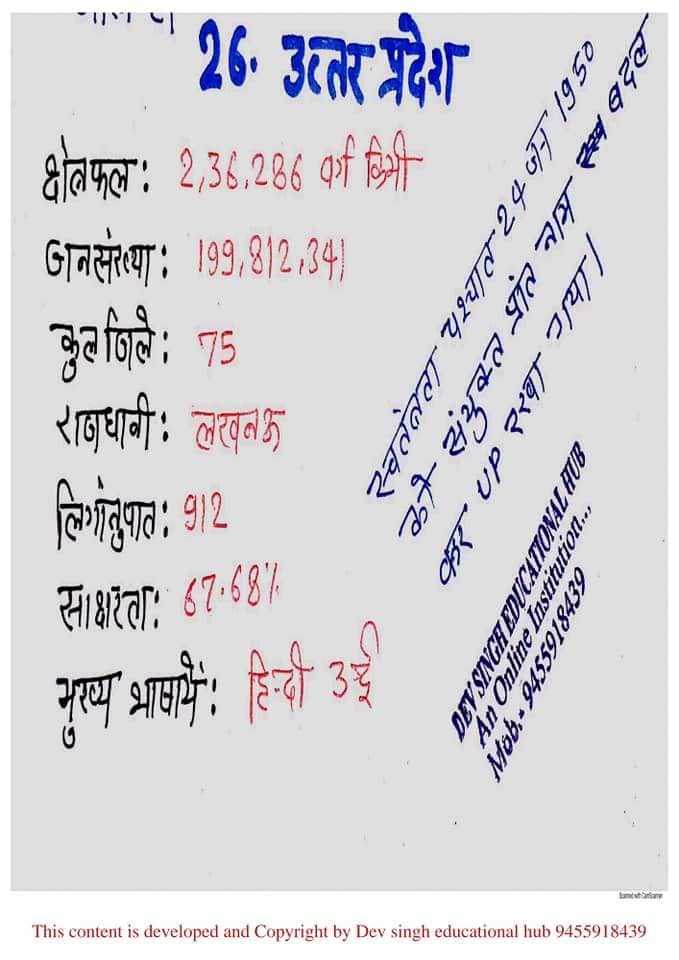 26. उत्तर प्रदेश
क्षेत्रफल : 2,36,286 वर्ग किमी
जनसंख्या : 199,812,341
कुल जिले : 75
राजधानी : लखनऊ
लिगांनुपात : 912
साक्षरता : 67.68%
मुख्य भाषायें : हिन्दी उर्दू
स्वतंत्रता पश्चात 24 जन 1950
को संयुक्त प्रांत नाम बदल
कर UP रखा गया।
DEV SINGH EDUCATIONAL HUB
An Online Institution...
Mob.- 9455918439
Scanned with CamScanner
This content is developed and Copyright by Dev singh educational hub 9455918439